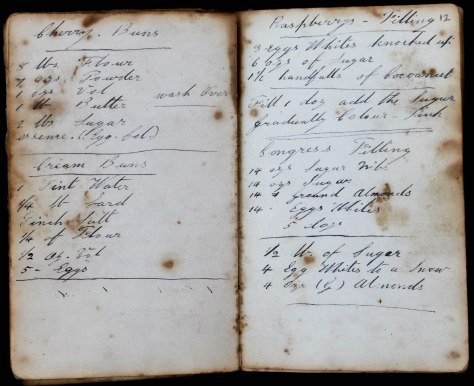 Cherry. Buns
8 lbs Flour
7 ozs Powder
ozs Vol wash over
1 lb Butter
2 lbs Sugar
essence. (Egg. Col.)
Cream Buns
1 Pint Water
1/4 lb Lard
Pinch Salt
3/4 of Flour
1/2 oz. Vol
5 - Eggs
Raspberrys - Filling 12
3 Eggs Whites knocked up
6 ozs of Sugar
1 1/2 handfulls of Cocoanut
add the Sugar
gradually Colour - Pink
Congress Filling
14 ozs Sugar Nibs
14 ozs Sugar
14 " ground Almonds
14. Eggs Whites
5 days
1/2 lb of Sugar
4 Egg Whites to a Snow
4 Ozs (G) Almonds